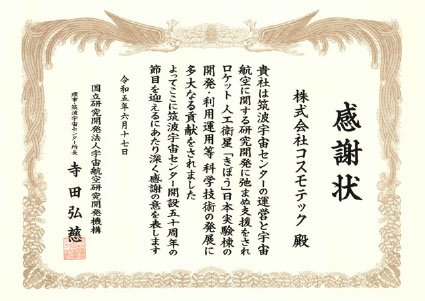 感謝状
株式会社コスモテック 殿
貴社は筑波宇宙センターの運営と宇宙
航空に関する研究開発に弛まぬ支援をされ
ロケット 人工衛星「きぼう」日本実験棟の
開発・利用運用等 科学技術の発展に
多大なる貢献をされました
よってここに筑波宇宙センター開設五十周年の
節目を迎えるにあたり深く感謝の意を表します
令和五年六月十七日
国立研究開発法人宇宙航空研究開発機構
理事・筑波宇宙センター所長 寺田弘慈